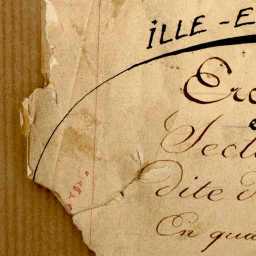 ILLE-E
Erc
Secti
dite d
En qua